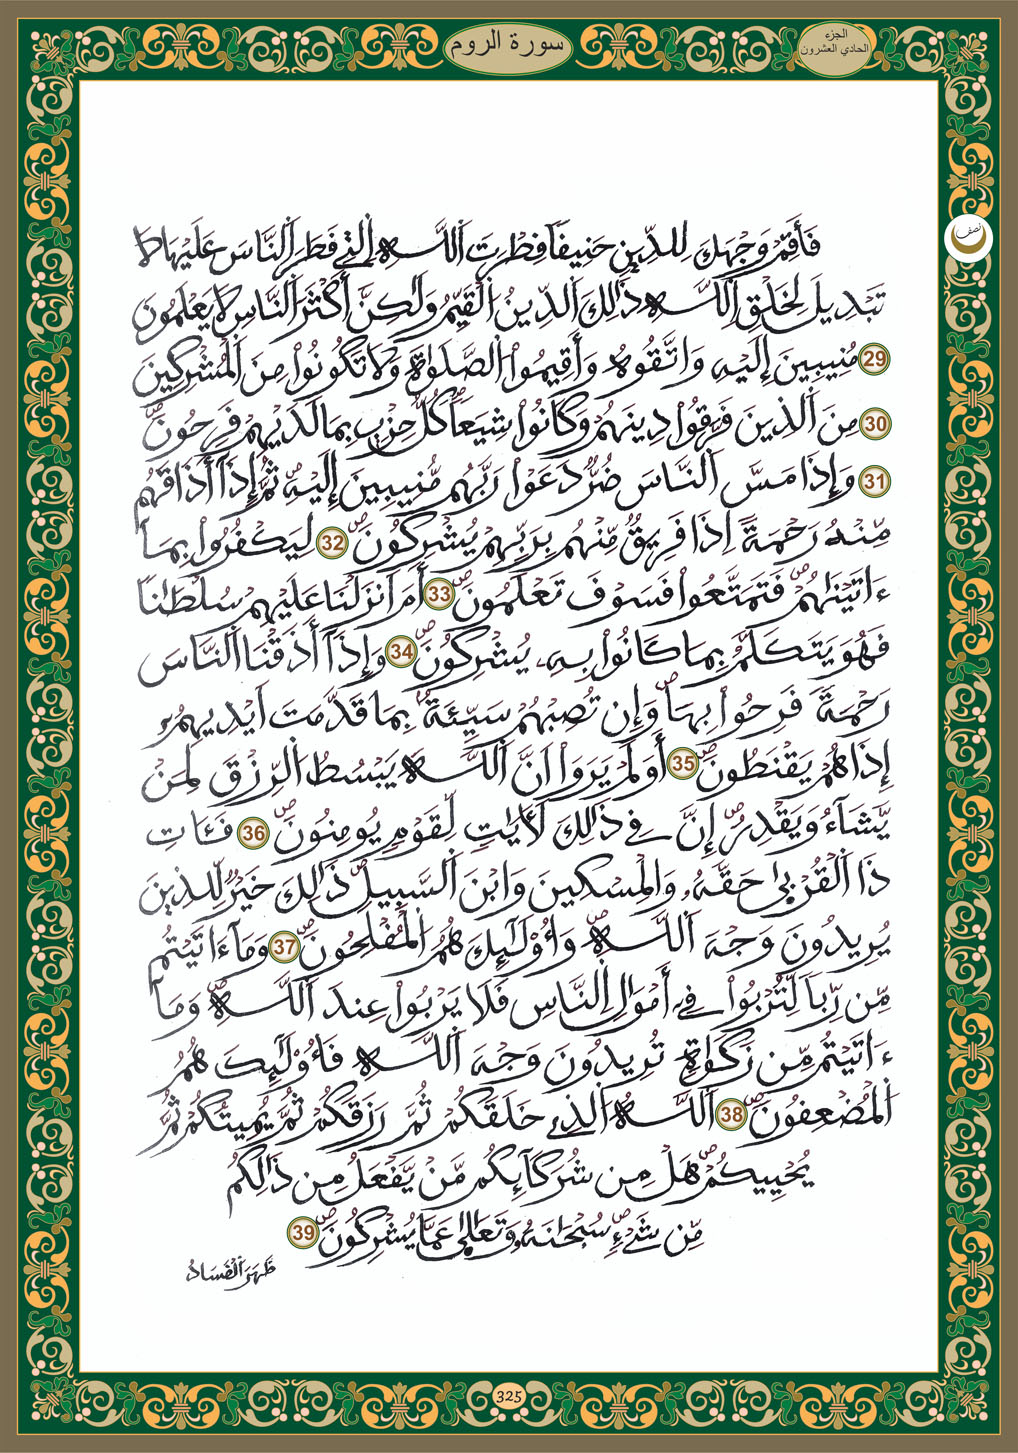 سورة الروم
الجزء
الحادي العشرون
نصف
فَأَقِمْ وَجْهَكَ لِلدِّينِ حَنِيفًا فِطْرَتَ اَ۬للَّهِ اِ۬لتِے فَطَرَ اَ۬لنَّاسَ عَلَيْهَا لَا
تَبْدِيلَ لِخَلْقِ اِ۬للَّهِ ذَٰلِكَ اَ۬لدِّينُ اُ۬لْقَيِّمُ وَلَٰكِنَّ أَكْثَرَ اَ۬لنَّاسِ لَا يَعْلَمُونَ
29 مُنِيبِينَ إِلَيْهِ وَاتَّقُوهُ وَأَقِيمُوا۟ اُ۬لصَّلَوٰةَ وَلَا تَكُونُوا۟ مِنَ اَ۬لْمُشْرِكِينَ
30 مِنَ اَ۬لذِينَ فَرَّقُوا۟ دِينَهُمْ وَكَانُوا۟ شِيَعًاۖ كُلُّ حِزْبٍ بِمَا لَدَيْهِمْ فَرِحُونَۖ
31 وَإِذَا مَسَّ اَ۬لنَّاسَ ضُرٌّ دَعَوْا۟ رَبَّهُم مُّنِيبِينَ إِلَيْهِۖ ثُمَّ إِذَآ أَذَاقَهُم
مِّنْهُ رَحْمَةً اِذَا فَرِيقٌ مِّنْهُم بِرَبِّهِمْ يُشْرِكُونَۖ 32 لِيَكْفُرُوا۟ بِمَآ
ءَاتَيْنَٰهُمْۖ فَتَمَتَّعُوا۟ فَسَوْفَ تَعْلَمُونَۖ 33 أَمَ اَنزَلْنَا عَلَيْهِمْ سُلْطَٰنًا
فَهُوَ يَتَكَلَّمُ بِمَا كَانُوا۟ بِهِۦ يُشْرِكُونَۖ 34 وَإِذَآ أَذَقْنَا اَ۬لنَّاسَ
رَحْمَةً فَرِحُوا۟ بِهَاۖ وَإِن تُصِبْهُمْ سَيِّئَةُۢ بِمَا قَدَّمَتَ اَيْدِيهِمُۥٓ
إِذَا هُمْ يَقْنَطُونَۖ 35 أَوَلَمْ يَرَوَا۟ اَنَّ اَ۬للَّهَ يَبْسُطُ اُ۬لرِّزْقَ لِمَنْ
يَّشَآءُ وَيَقْدِرُۖ إِنَّ فِے ذَٰلِكَ لَأٓيَٰتٍ لِّقَوْمٍ يُومِنُونَۖ 36 فَـَٔاتِ
ذَا اَ۬لْقُرْب۪يٰ حَقَّهُۥ وَالْمِسْكِينَ وَابْنَ اَ۬لسَّبِيلِۖ ذَٰلِكَ خَيْرٌ لِّلذِينَ
يُرِيدُونَ وَجْهَ اَ۬للَّهِۖ وَأُوْلَٰٓئِكَ هُمُ اُ۬لْمُفْلِحُونَۖ 37 وَمَآ ءَاتَيْتُم
مِّن رِّباً لِّتُرْبُوا۟ فِےٓ أَمْوَٰلِ اِ۬لنَّاسِ فَلَا يَرْبُوا۟ عِندَ اَ۬للَّهِۖ وَمَآ
ءَاتَيْتُم مِّن زَكَوٰةٍ تُرِيدُونَ وَجْهَ اَ۬للَّهِ فَأُوْلَٰٓئِكَ هُمُ
اُ۬لْمُضْعِفُونَۖ 38 اَ۬للَّهُ اُ۬لذِے خَلَقَكُمْ ثُمَّ رَزَقَكُمْ ثُمَّ يُمِيتُكُمْ ثُمَّ
يُحْيِيكُمْۖ هَلْ مِن شُرَكَآئِكُم مَّنْ يَّفْعَلُ مِن ذَٰلِكُم
مِّن شَےْءٍۖ سُبْحَٰنَهُۥ وَتَعَٰل۪يٰ عَمَّا يُشْرِكُونَۖ 39
ظَهَرَ اَ۬لْفَسَادُ
325